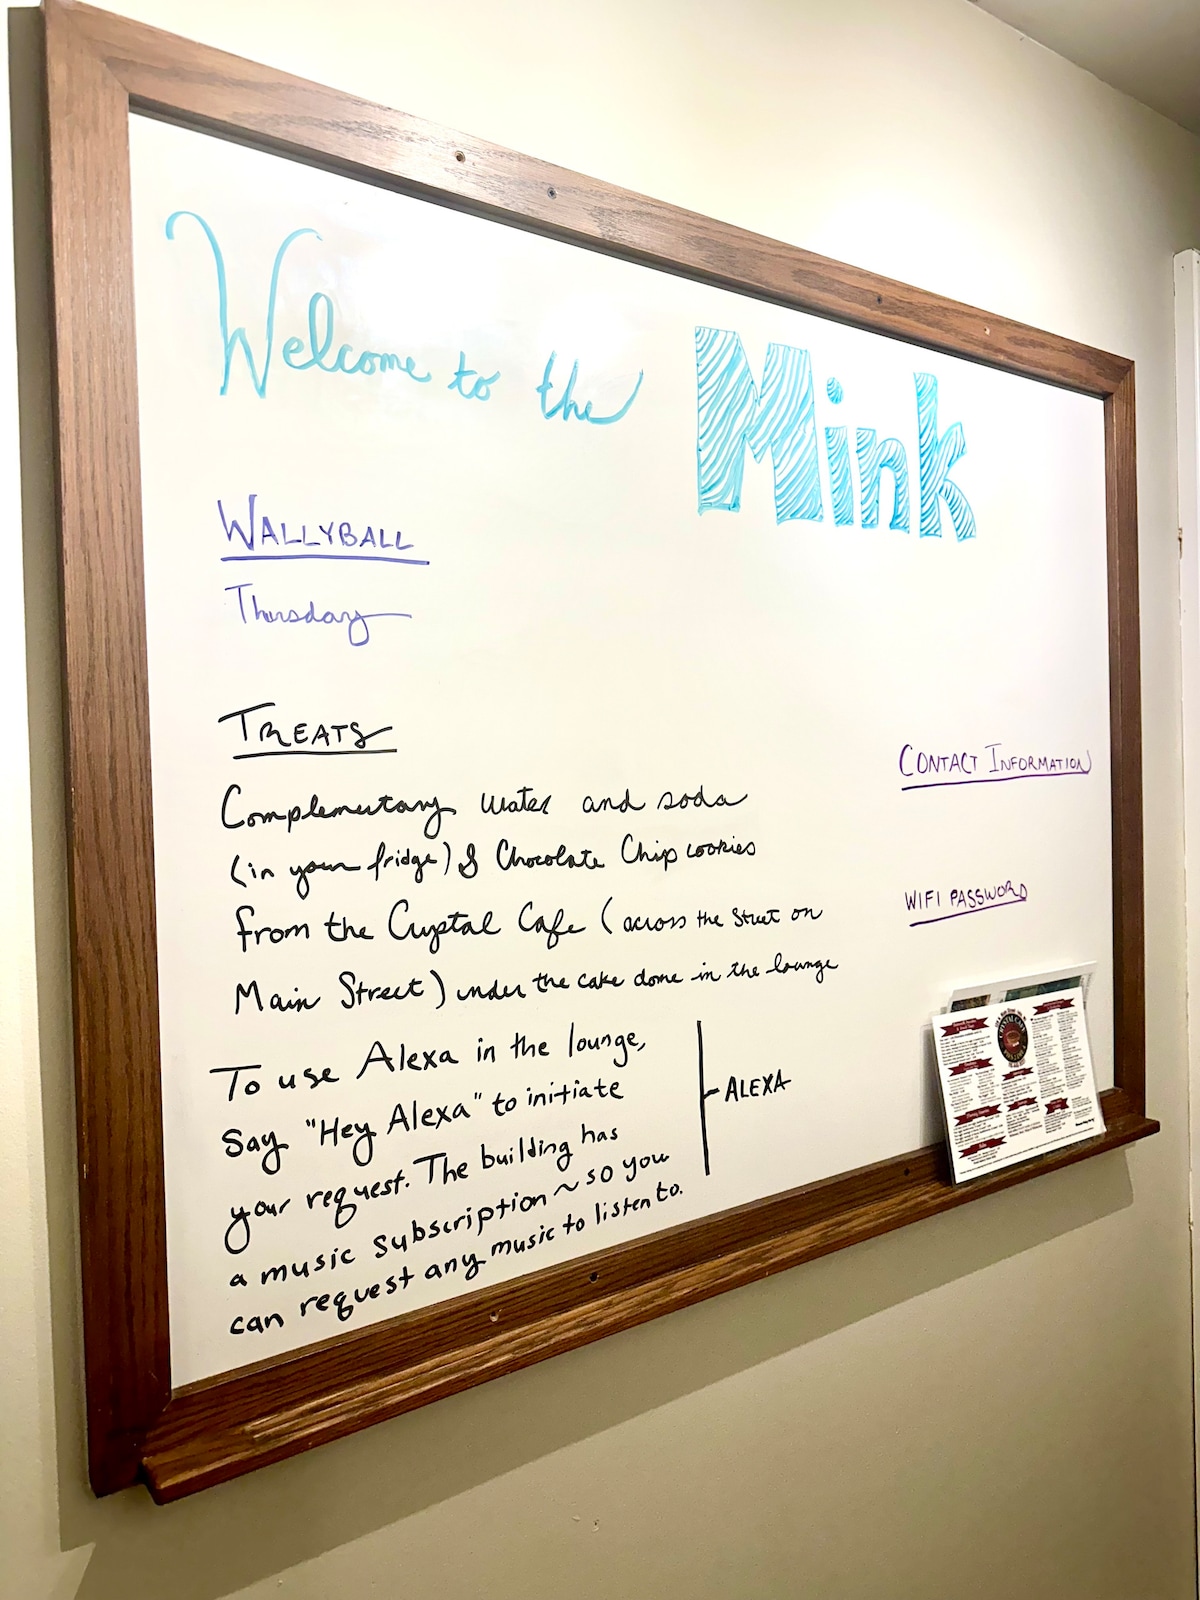 Welcome to the Mink
WALLYBALL
Thursday
TREATS
Complemutary water and soda
(in your fridge) & Chocolate Chip cookies
from the Crystal Cafe (across the street on
Main Street) under the cake dome in the lounge
To use Alexa in the lounge,
Say "Hey Alexa" to initiate
your request. The building has
a music subscription ~ so you
can request any music to listen to.
ALEXA
CONTACT INFORMATION
WIFI PASSWORD
CRYSTAL CAFE